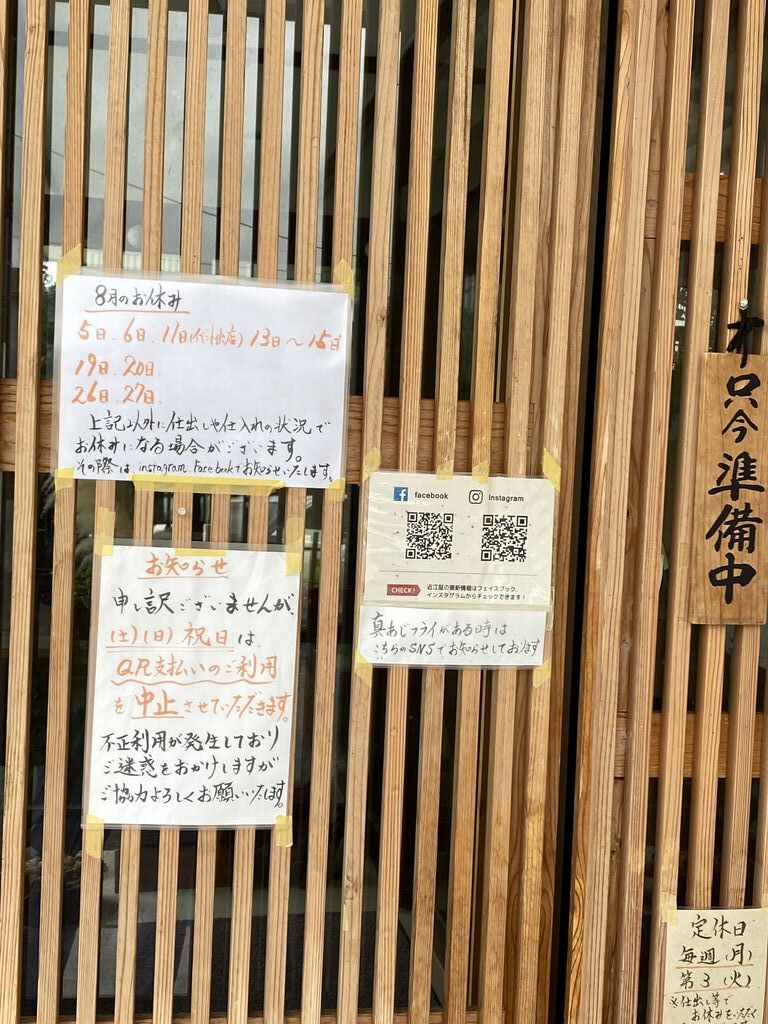 8月のお休み
5日、6日、11日(イベント出店) 13日〜15日
19日、20日、
26日、27日、
上記以外に仕出しや仕入れの状況で
お休みになる場合がございます。
その際は instagram Facebookでお知らせいたします。
facebook
Instagram
CHECK!
近江屋の最新情報はフェイスブック、
インスタグラムからチェックできます!
真あじフライがある時は
こちらのSNSでお知らせしております
お知らせ
申し訳ございませんが、
(土)(日)祝日は、
QR支払いのご利用
を中止させていただきます。
不正利用が発生しており
ご迷惑をおかけしますが
ご協力よろしくお願いいたします。
只今準備中
定休日
毎週(月)
第3(火)
※仕出し等で
お休みをいただく